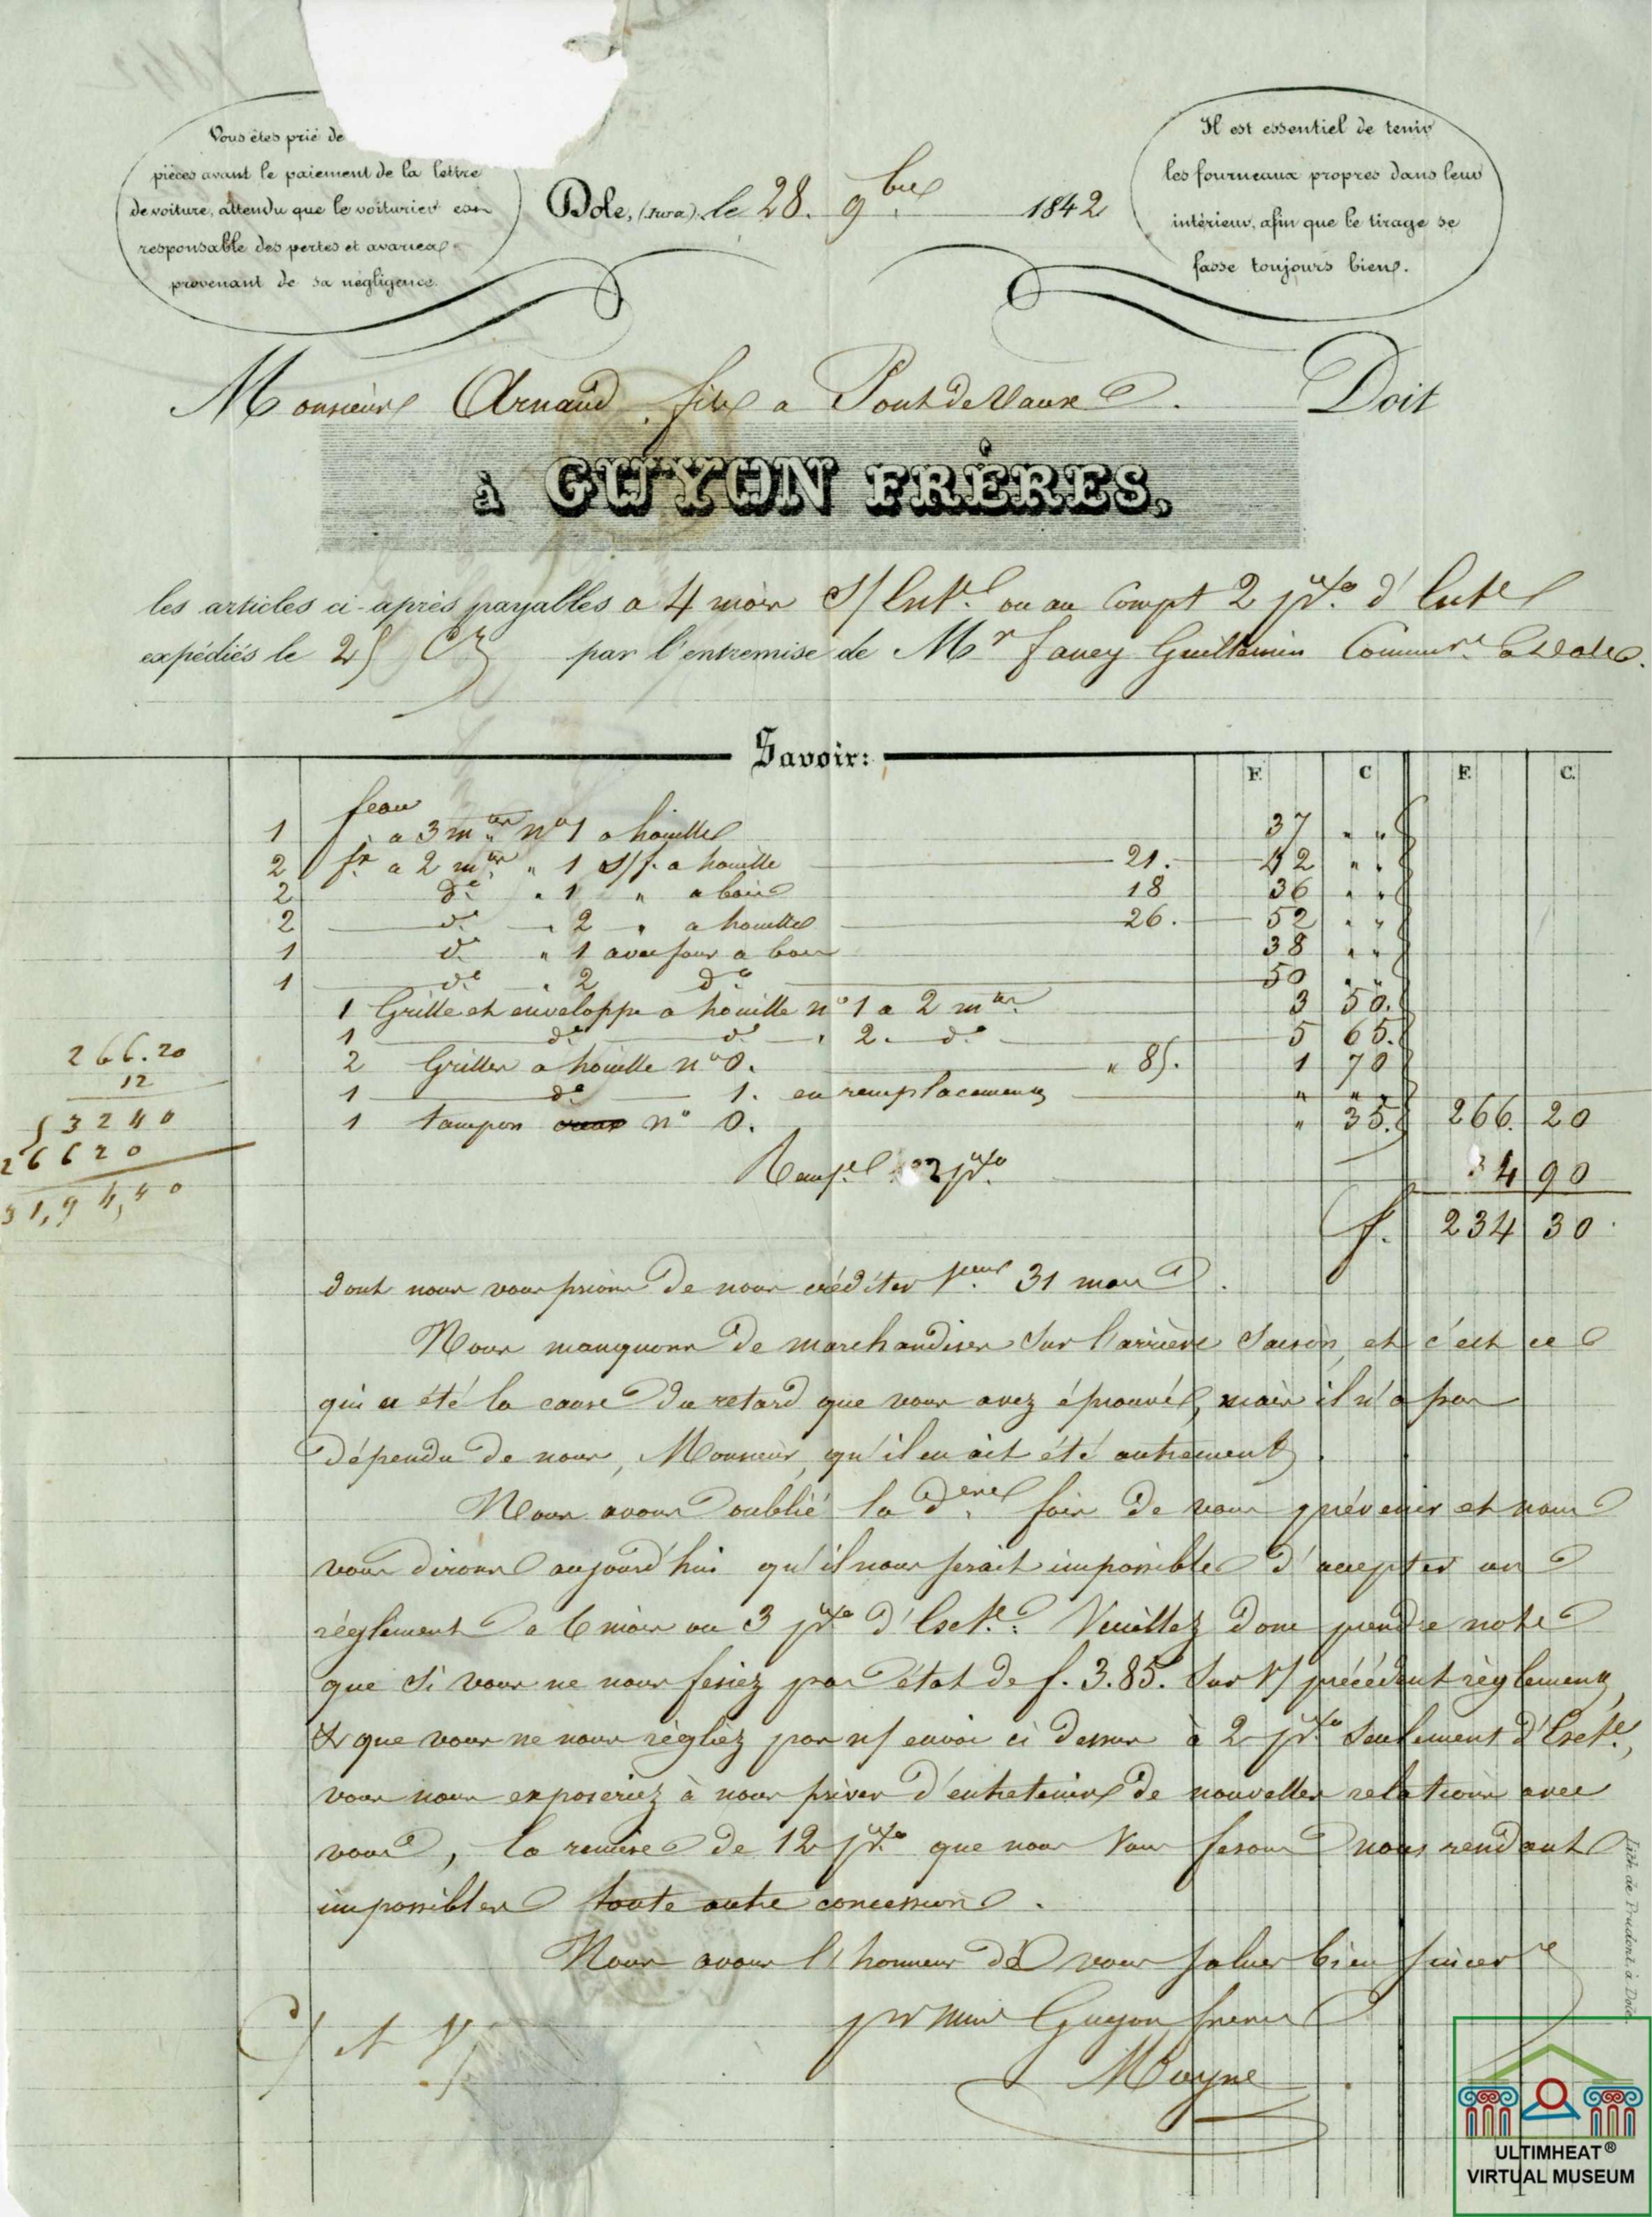 Vous êtes prié de
pièces avant le paiement de la lettre
de voiture, attendu que le voiturier est
responsable des pertes et avaries
provenant de sa négligence.
Dole, (Jura), le 28. 9bre 1842
Il est essentiel de tenir
les fourneaux propres dans leur
intérieur, afin que le tirage se
fasse toujours bien.
Monsieur Arnaud fils a Pont de Vaux. Doit
à GUYON FRÈRES,
les articles ci-après payables a 4 mois ou au Compt 2 p% d'
expédiés le 25 par l'entremise de Mr Guillemin
Savoir:
F. C. F. C.
1 feau a 3 mtes no 1 a houille 37 " "
2 fx a 2 mtes " 1 S/f. a houille 21. 42 " "
2 do " 1 " a bois 18 36 " "
2 do " 2 " a houille 26. 52 " "
1 do " 1 avec four a bois 38 " "
1 do " 2 do 50 " "
1 Grille et enveloppe a houille no 1 a 2 mtes 3 50.
1 do do " 2. do 5 65.
2 Grilles a houille no 0. " 85. 1 70
1 do 1. en remplacement " " "
1 tampon no 0. " 35. 266. 20
2 p% 34 90
f. 234 30
266.20
12
53240
26620
31,94,40
dont nous vous prions de nous créditer pour 31 mars.
Nous manquons de marchandises sur l'arrière saison, et c'est ce
qui a été la cause du retard que vous avez éprouvé, mais il n'a pas
dépendu de nous, Monsieur, qu'il en ait été autrement.
Nous avons oublié la dere fois de vous prévenir et nous
vous dirons aujourd'hui qu'il nous serait impossible d'accepter un
règlement a 6 mois ou 3 p% d'Escte. Veuillez donc prendre note
que si vous ne nous fesiez pas état de f. 3.85. sur V/ précédent règlement,
& que vous ne nous régliez pas n/ envoi ci dessus à 2 p% seulement d'Escte,
vous nous exposeriez à nous priver d'entretenir de nouvelles relations avec
vous, la remise de 12 p% que nous vous fesons nous rendant
impossibles toute autre concession.
Nous avons l'honneur de vous saluer bien sincere
Guyon freres
Mayne
Lith. de Prudont, à Dole
ULTIMHEAT®
VIRTUAL MUSEUM